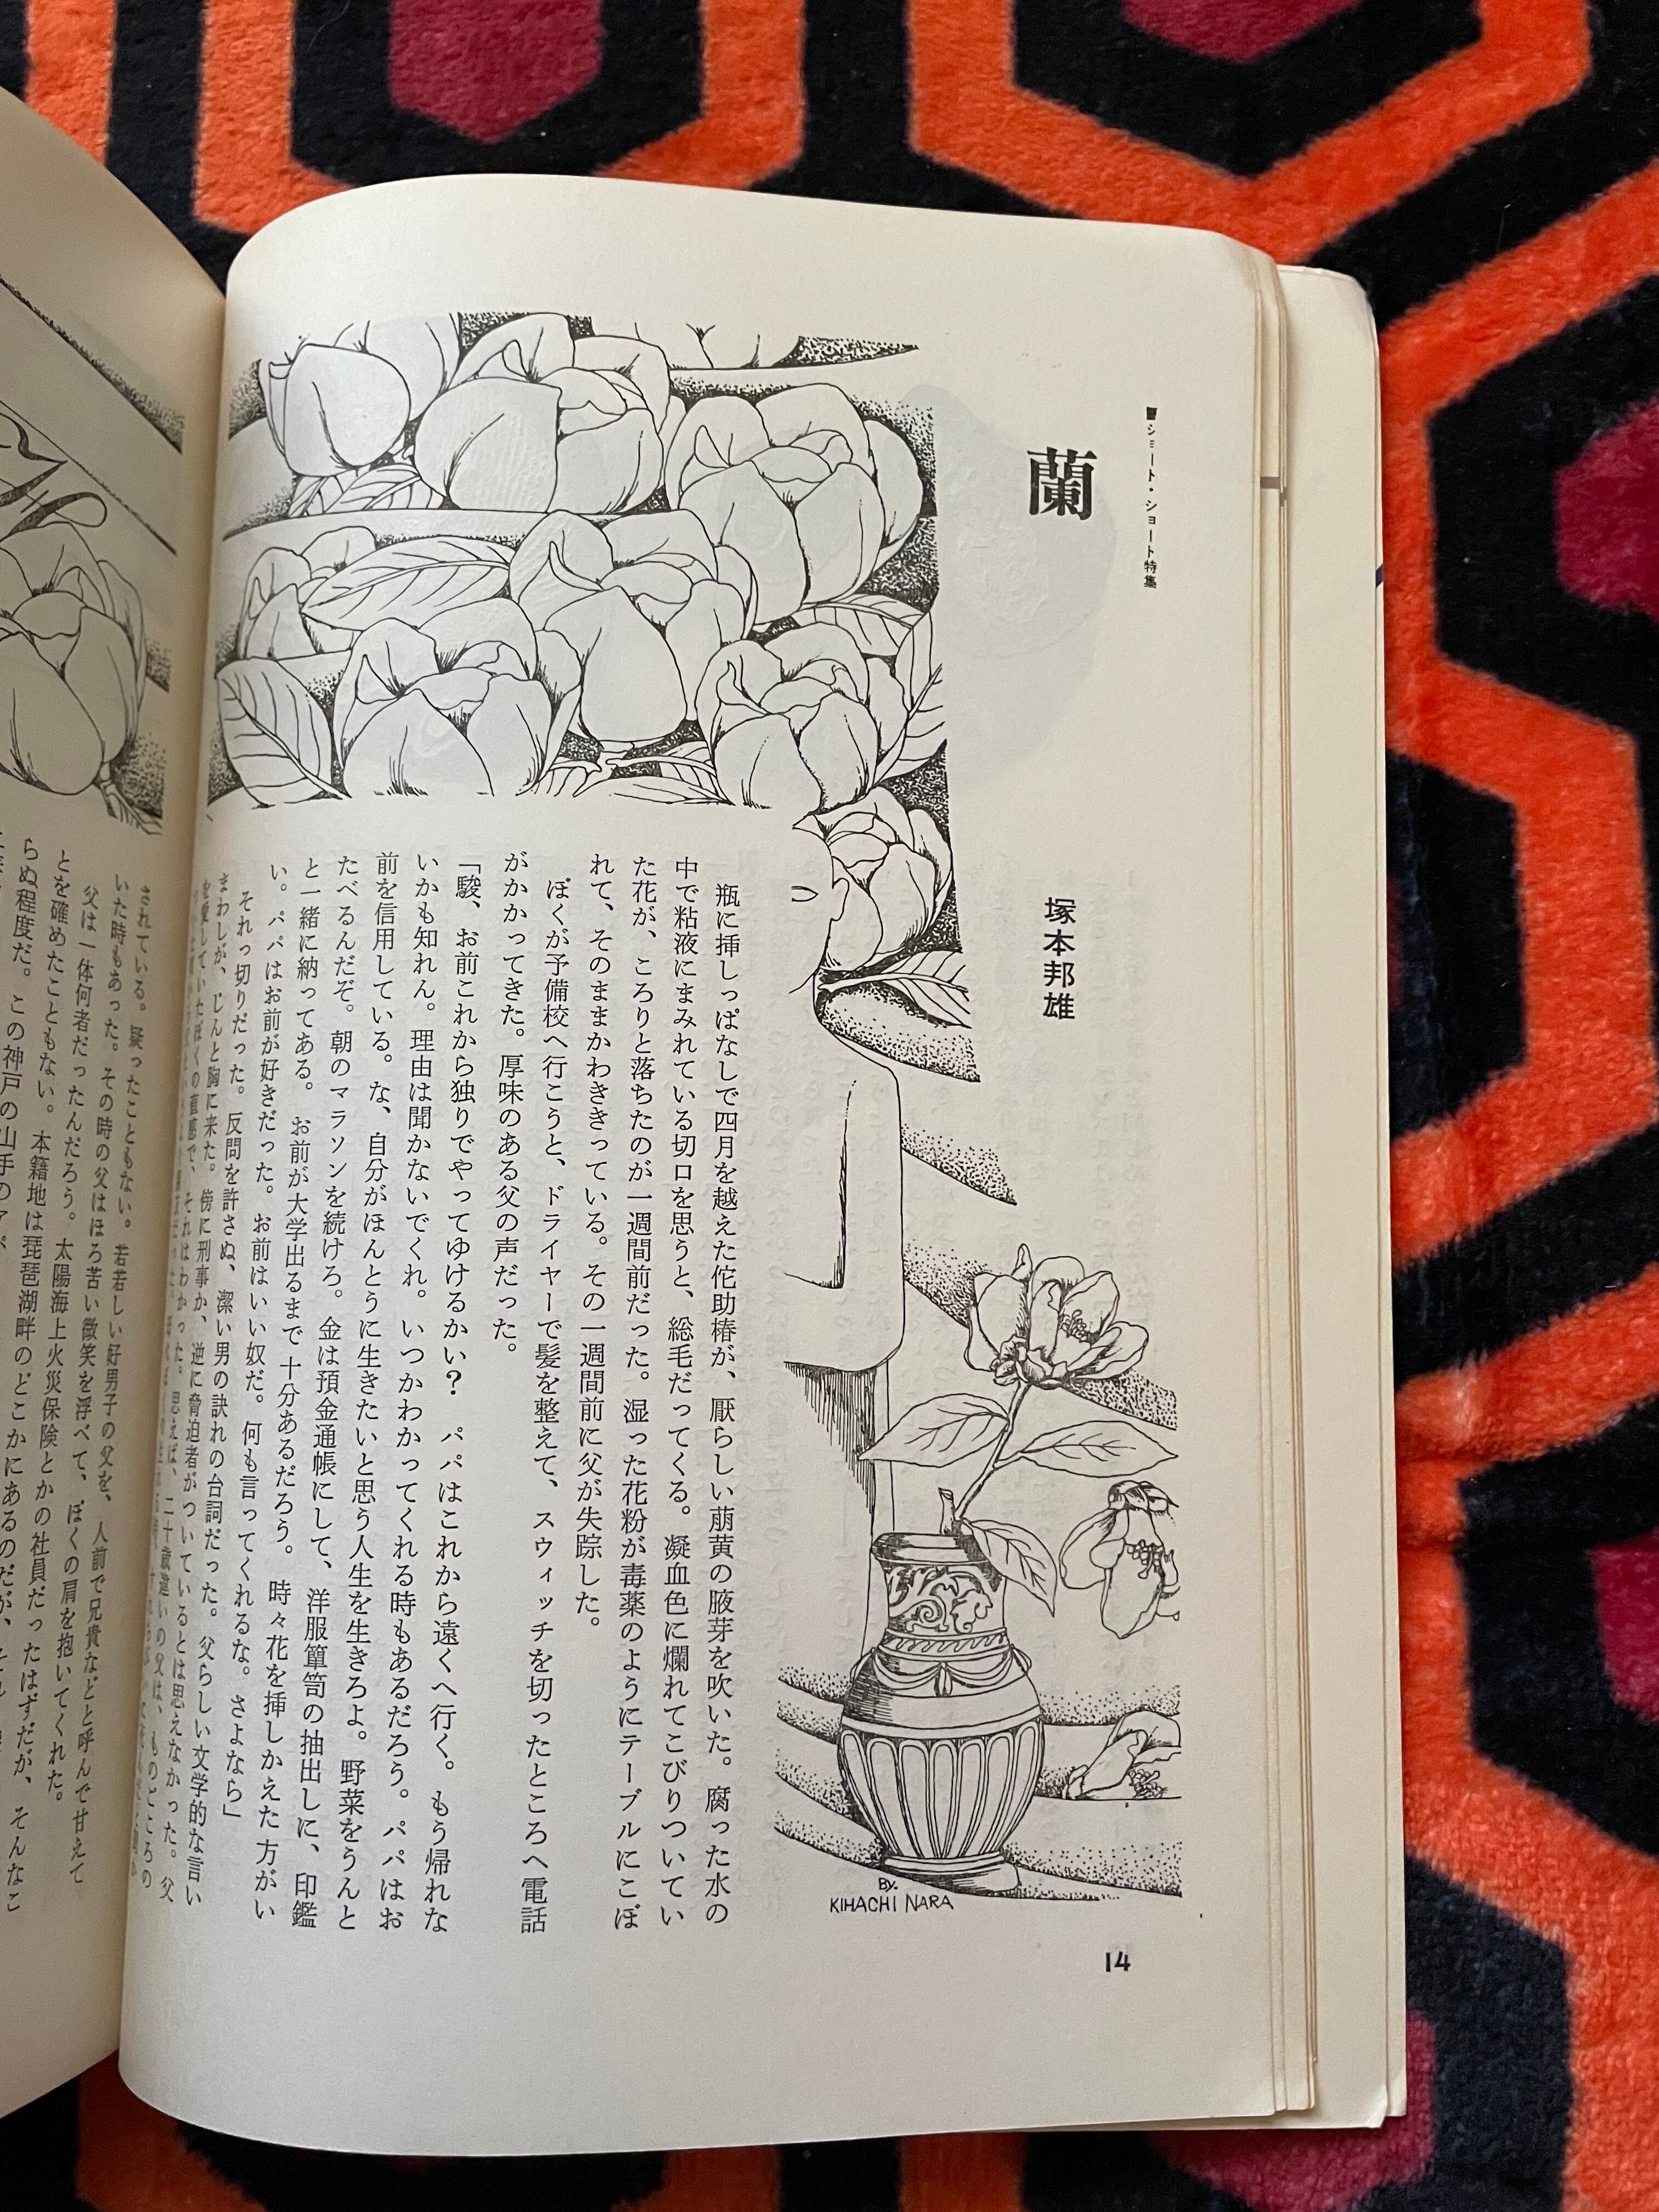 ■ショート・ショート特集
蘭
塚本邦雄
瓶に挿しっぱなしで四月を越えた佗助椿が、厭らしい萠黄の腋芽を吹いた。腐った水の
中で粘液にまみれている切口を思うと、総毛だってくる。凝血色に爛れてこびりついてい
た花が、ころりと落ちたのが一週間前だった。湿った花粉が毒薬のようにテーブルにこぼ
れて、そのままかわききっている。その一週間前に父が失踪した。
ぼくが予備校へ行こうと、ドライヤーで髪を整えて、スウィッチを切ったところへ電話
がかかってきた。厚味のある父の声だった。
「駿、お前これから独りでやってゆけるかい？　パパはこれから遠くへ行く。もう帰れな
いかも知れん。理由は聞かないでくれ。いつかわかってくれる時もあるだろう。パパはお
前を信用している。な、自分がほんとうに生きたいと思う人生を生きろよ。野菜をうんと
たべるんだぞ。朝のマラソンを続けろ。金は預金通帳にして、洋服簞笥の抽出しに、印鑑
と一緒に納ってある。お前が大学出るまで十分あるだろう。時々花を挿しかえた方がい
い。パパはお前が好きだった。お前はいい奴だ。何も言ってくれるな。さよなら」
それっ切りだった。反問を許さぬ、潔い男の訣れの台詞だった。父らしい文学的な言い
まわしが、じんと胸に来た。傍に刑事か、逆に脅迫者がついているとは思えなかった。父
を愛していたぼくの直感で、それはわかった。思えば、二十歳違いの父は、ものごころの
されている。疑ったこともない。若若しい好男子の父を、人前で兄貴などと呼んで甘えて
いた時もあった。その時の父はほろ苦い微笑を浮べて、ぼくの肩を抱いてくれた。
父は一体何者だったんだろう。太陽海上火災保険とかの社員だったはずだが、そんなこ
とを確めたこともない。本籍地は琵琶湖畔のどこかにあるのだが、
らぬ程度だ。この神戸の山手の
By.
KIHACHI NARA
14